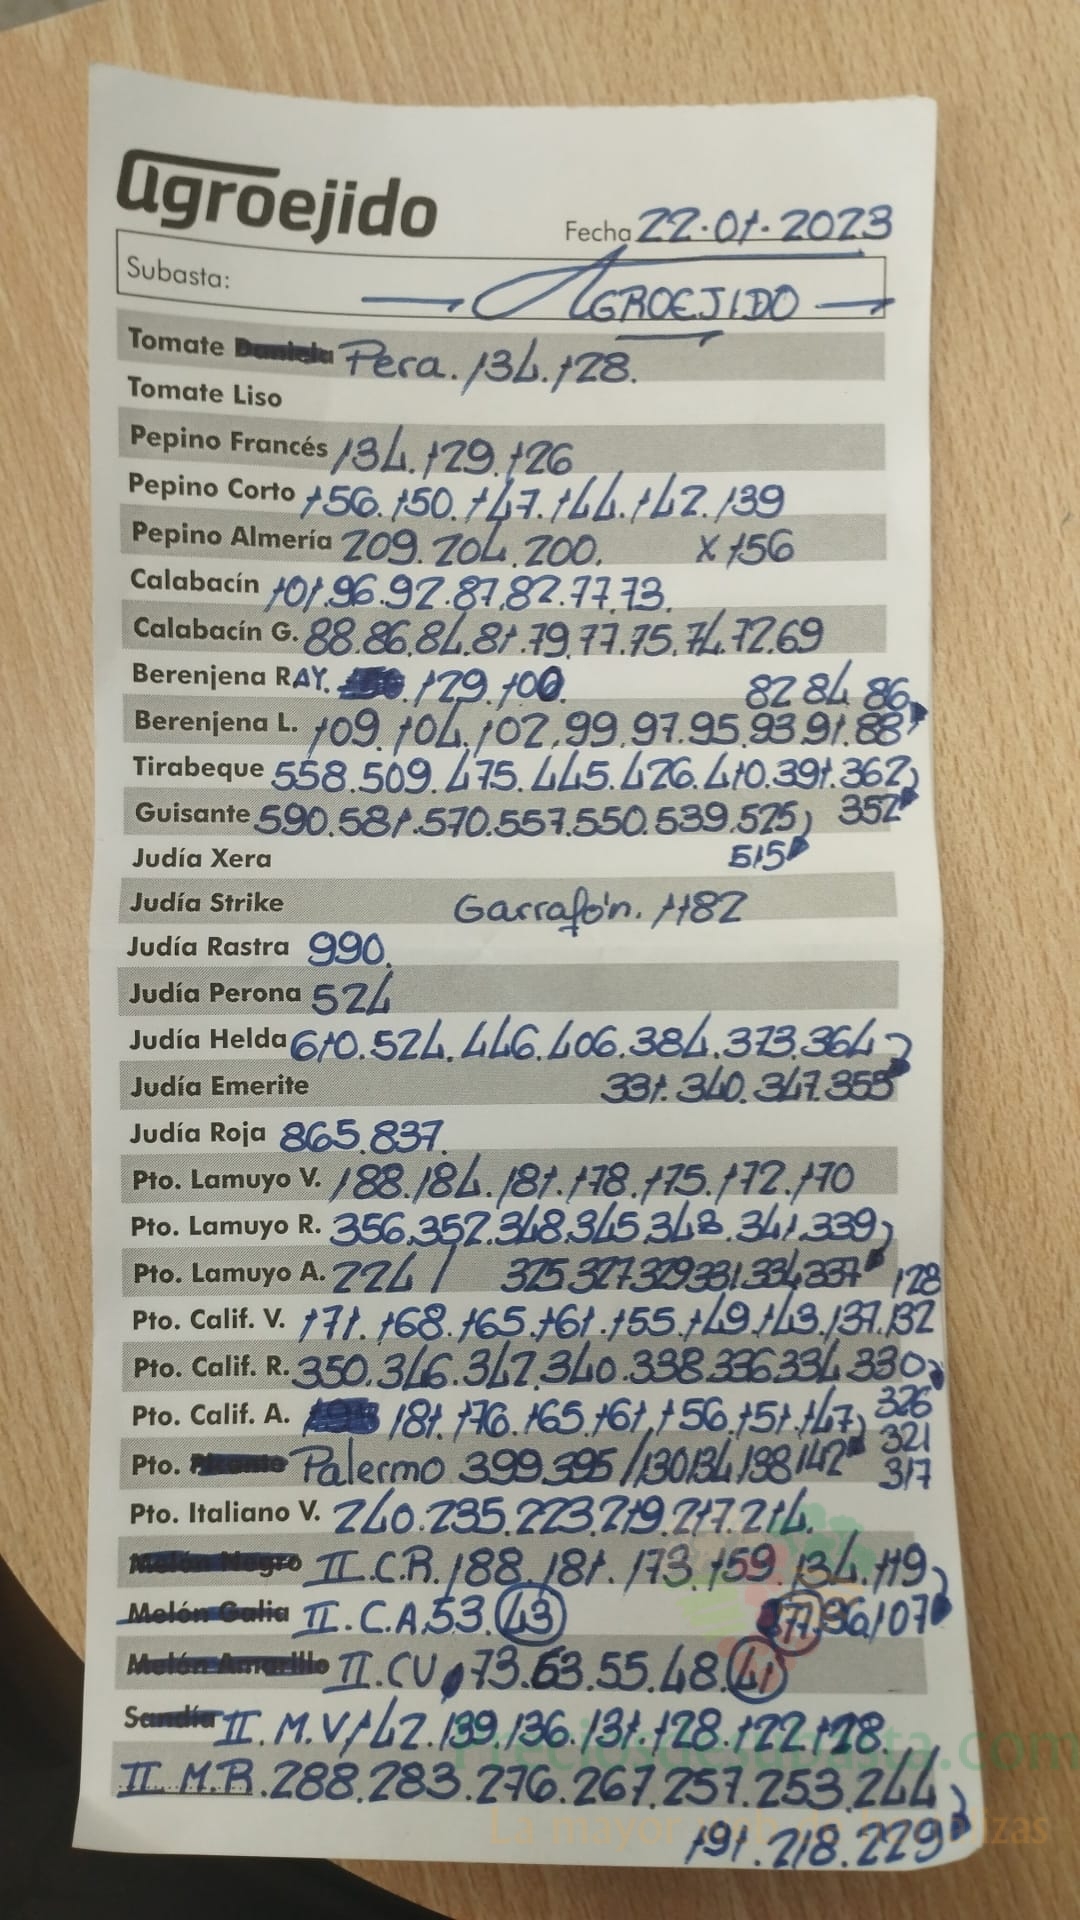 agroejido
Fecha 22·01·2023
Subasta: AGROEJIDO
Tomate Daniela Pera. 134. 128.
Tomate Liso
Pepino Francés 134. 129. 126
Pepino Corto 156. 150. 147. 144. 142. 139
Pepino Almería 209. 204. 200. x 156
Calabacín 101. 96. 92. 87. 82. 77. 73.
Calabacín G. 88. 86. 84. 81. 79. 77. 75. 74. 72. 69
Berenjena RAY. 129. 100. 82 84 86
Berenjena L. 109. 104. 102. 99. 97. 95. 93. 91. 88
Tirabeque 558. 509. 475. 445. 426. 410. 391. 362
Guisante 590. 581. 570. 557. 550. 539. 525 352
Judía Xera 515
Judía Strike Garrafón. 1182
Judía Rastra 990.
Judía Perona 524
Judía Helda 610. 524. 446. 406. 384. 373. 364
Judía Emerite 331. 340. 347. 355
Judía Roja 865. 837.
Pto. Lamuyo V. 188. 184. 181. 178. 175. 172. 170
Pto. Lamuyo R. 356. 352. 348. 345. 343. 341. 339
Pto. Lamuyo A. 224 / 325 327 329 331 334 337 128
Pto. Calif. V. 171. 168. 165. 161. 155. 149. 143. 137. 132
Pto. Calif. R. 350. 346. 342. 340. 338. 336 334. 330
Pto. Calif. A. 181. 176. 165. 161. 156. 151. 147 326
321
Pto. Palermo 399. 395 / 130 134 138 142 317
Pto. Italiano V. 240. 235. 223. 219. 217. 214.
Melón Negro II. C.R. 188. 181. 173. 159. 134. 119
Melón Galia II. C.A. 53. 43 77. 96. 107
Melón Amarillo II. CV 73. 63. 55. 48. 41
Sandía II. M.V 142. 139. 136. 131. 128. 122 128.
II. M.R. 288. 283. 276. 267. 257. 253. 244
191. 218. 229
Preciosdesubasta.com